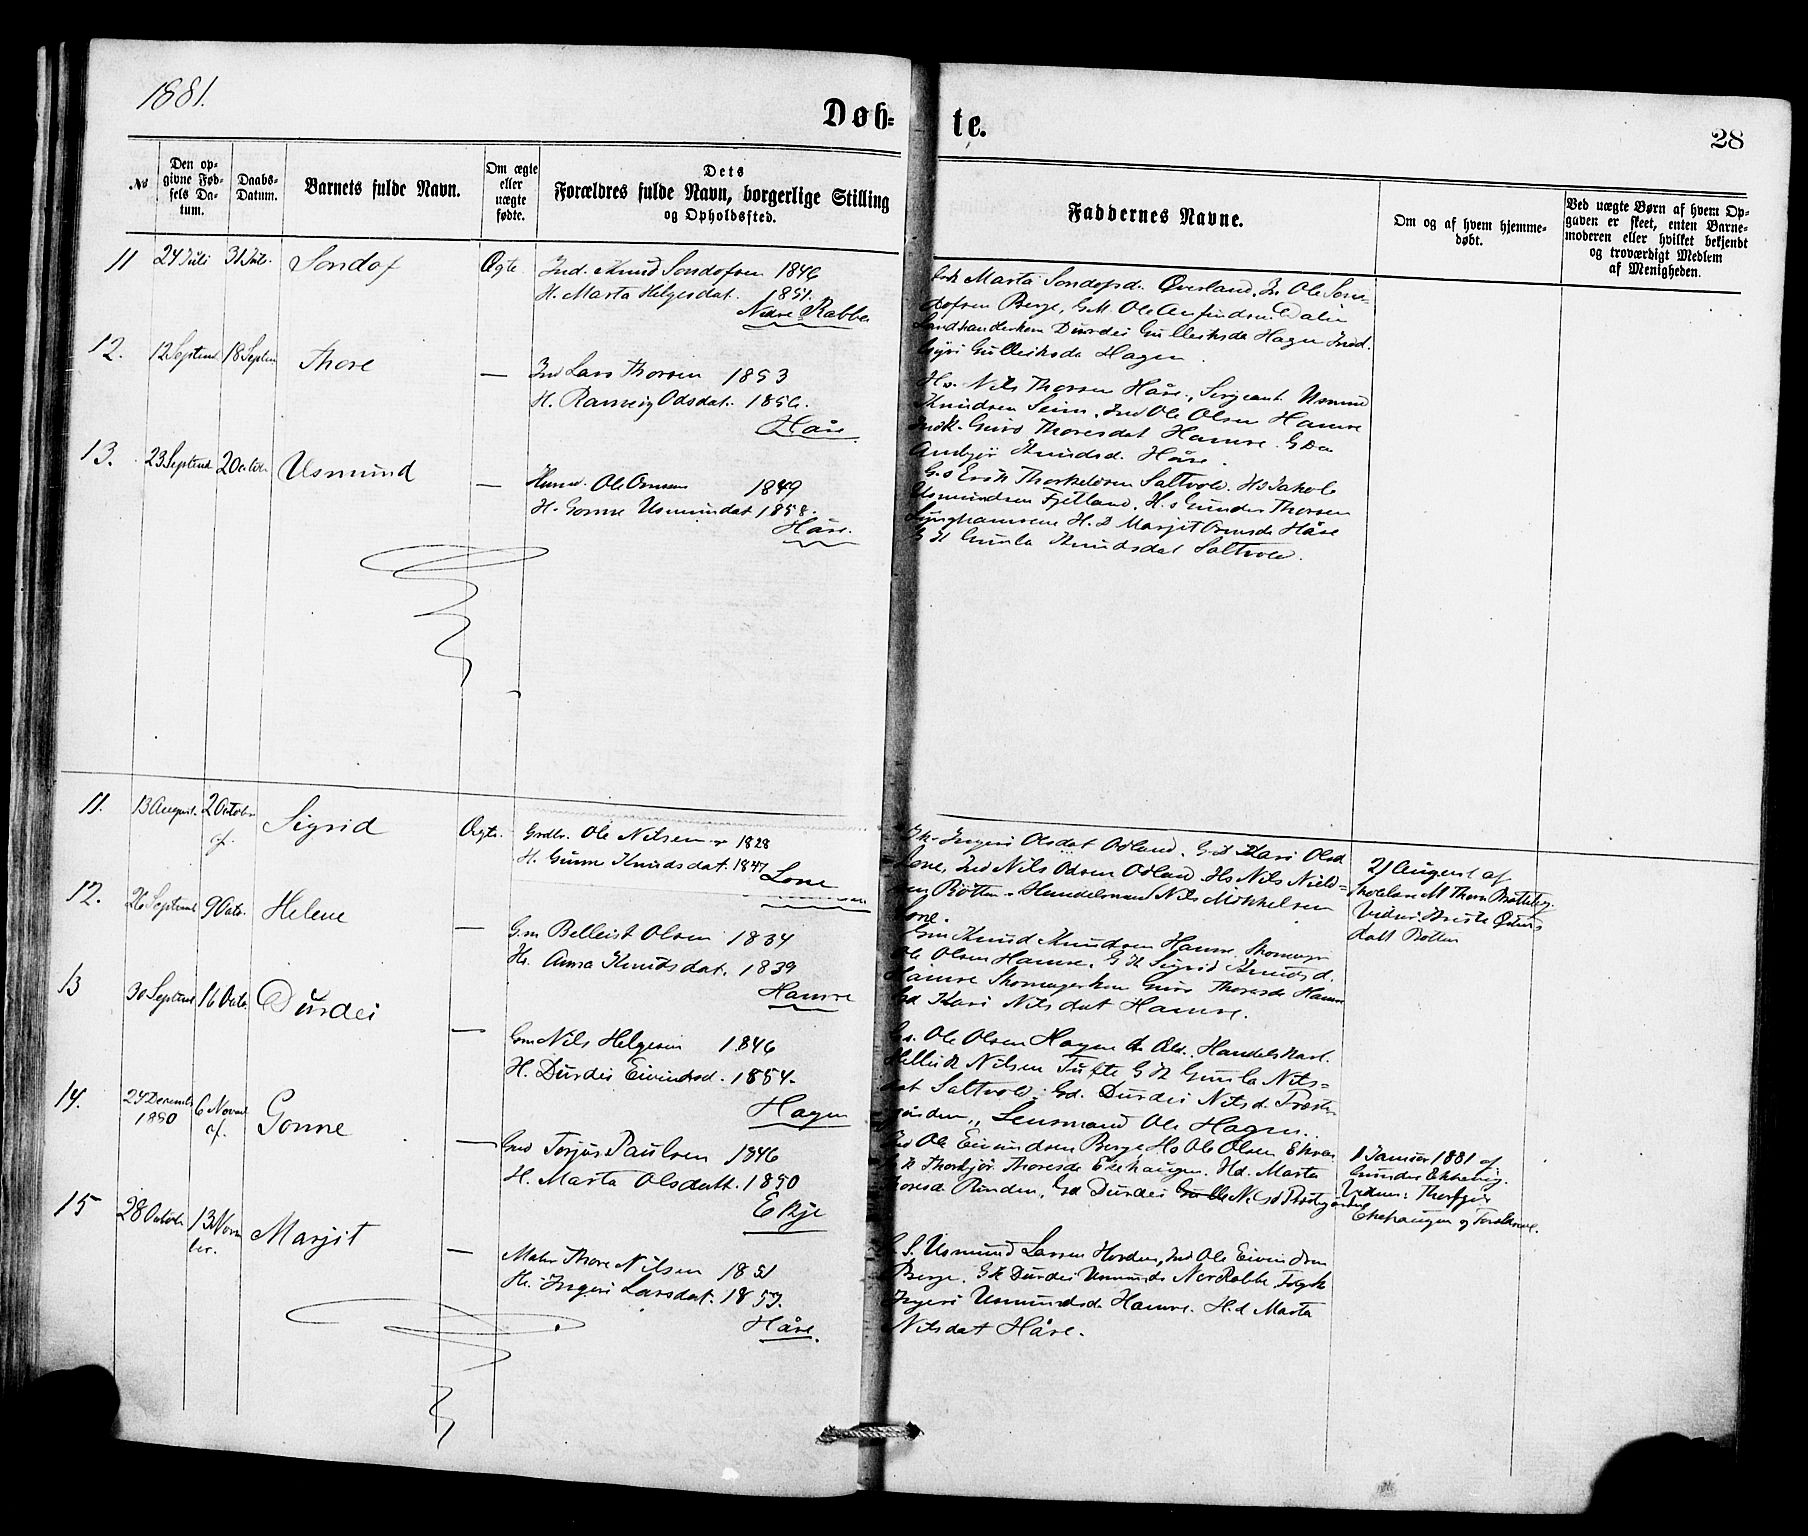 1881.
Døb-te.
28
No
Den op-
givne Fød-
sels Da-
tum.
Daabs-
Datum.
Barnets fulde Navn.
Om ægte
eller
uægte
fødte.
Dets
Forældres fulde Navn, borgerlige Stilling
og Opholdssted.
Faddernes Navne.
Om og af hvem hjemme-
døbt.
Ved uægte Børn af hvem Op-
gaven er skeet, enten Barne-
moderen eller hvilket bekjendt
og troværdigt Medlem
af Menigheden.
11 24 Juli 31 Juli Sondof Ægte Ind. Knud Sondofsen 1846
H. Marta Helgesdat. 1851.
Nedre Rabbe
Marta Sondofsd. Øverland, In Ole Son-
dofsen Berge, G.M. Ole Dalen
Landhandlerkone Durdei Gulleiksda Hagen Ind.
Gyri Gulleiksda Hagen.
12. 12 Septemb 18 Septem Thore — Ind Lars Thorsen 1853
H. Ranveig Odsdat. 1856.
Håse
Hs. Nils Thorsen Håse, Sergeant Usmund
Knudsen Seim, Ind Ole Olsen Hamre
Indk. Guro Thoresdat Hamre. G Da
Knudsd. Håse.
13. 23 Septemb 2 Octobr Usmund — Ole Ormsen 1849
H. Gonne Usmundat 1858.
Håse.
G.s Erik Thorkeldsen Saltvold. Hs Jakob
Usmundsen Fjetland. H.s Gunder Thorsen
H.D Marjit Ormsda Håse
G K Gunla Knudsdat Saltvold.
11. 13 August. 2 Octobr
af.
Sigrid Ægte. Grdbr. Ole Nilsen 1828
H. Gunne Knudsdat. 1847
Lone
Ik. Ingeri Olsdat Odland. G.K Kari Olsd
Lone, Ind Nils Odsen Odland Hs Nils Niels-
en Botten. Handelsmand Nils Mikkelsen
Lone.
21 August af
Skolelærer M Thorn Brotteberg.
Vidne: Aviste
datt Botten
12. 26 Septemb 9 Octo. Helene — G.m Belleist Olsen 1834
H. Anna Knudsdat. 1839
Hamre
Gm Knud Knudsen Hamre. Skomager
Ole Olsen Hamre. G K Sigrid Knudsd.
Hamre Skomagerkon Guro Thoresda Hamre
Gd Kari Nilsdat Hamre.
13 30 Septemb 16 Octo. Durdei — Gm Nils Helgesen 1846
H. Durdei Eivindsd. 1854.
Hagen
Gs. Ole Olsen Hagen Handelskarl.
Helleik Nilsen Tufte G K Gunla Nils-
dat Saltvold. Gd. Durdei Nilsd. Præste-
gården, Lensmand Ole Hagen.
14. 24 Decemb
1880
6 Novemb
af.
Gonne — Gmd Torjus Paulsen 1846
H. Marta Olsdatt. 1850
Ekje
Ind Ole Eivindsen Berge Hs Ole Olsen
G K Thorbjør Thoresda Ekehaugen. Hd. Marta
Toresd. Rinden, Gd Durdei Nilsd Præstegården
1 Januar 1881 af
Gunder
Vidne: Thorbjør
Ekehaugen og
15 28 Octobr 13 Novem
ber.
Marjit — Thore Nilsen 1851
H. Ingeri Larsdat. 1853.
Håse.
G. S. Usmund Larsen Ind Ole Eivindsen
Berge. G K Durdei Usmunds Ner Rabbe
Ingeri Usmundsda Hamre. H.d Marta
Nilsdat Håse.